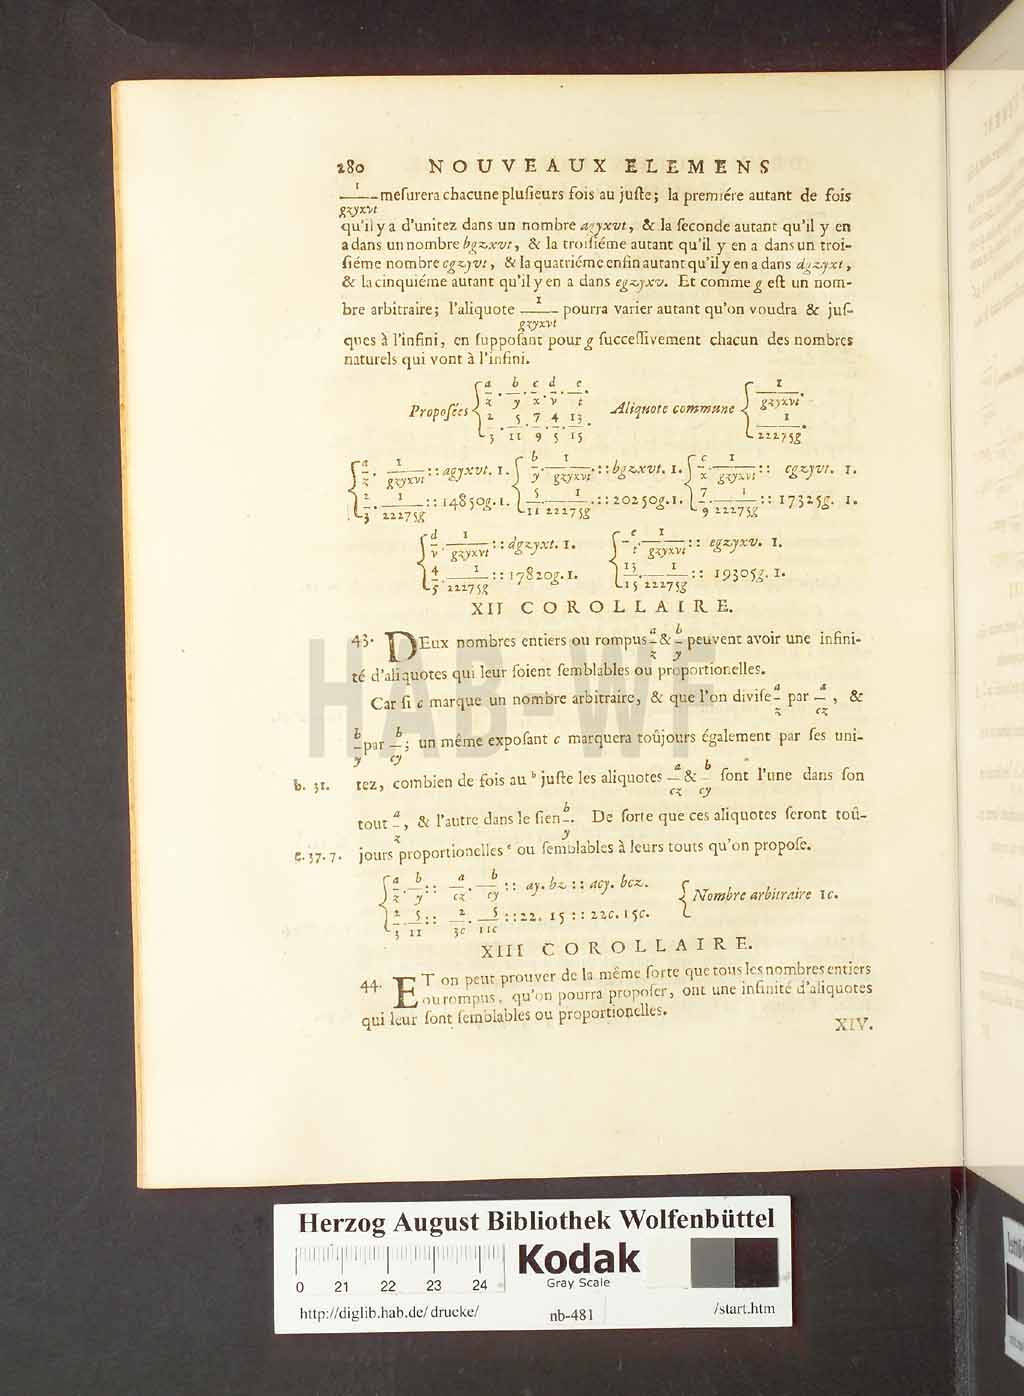 280 NOUVEAUX ELEMENS
1/gzyxvt meſurera chacune pluſieurs fois au juſte; la premiére autant de fois
qu'il y a d'unitez dans un nombre agyxvt, & la ſeconde autant qu'il y en
a dans un nombre bgzxvt, & la troiſiéme autant qu'il y en a dans un troi-
ſiéme nombre cgzyvt, & la quatriéme enfin autant qu'il y en a dans dgzyxt,
& la cinquiéme autant qu'il y en a dans egzyxv. Et comme g eſt un nom-
bre arbitraire; l'aliquote 1/gzyxvt pourra varier autant qu'on voudra & juſ-
ques à l'infini, en ſuppoſant pour g ſucceſſivement chacun des nombres
naturels qui vont à l'infini.
Propoſées { a/z . b/y . c/x . d/v . e/t . Aliquote commune { 1/gzyxvt .
2/3 . 5/11 . 7/9 . 4/5 . 13/15 . 1/22275g .
{ a/z . 1/gzyxvt :: agyxvt. 1. { b/y . 1/gzyxvt :: bgzxvt. 1. { c/x . 1/gzyxvt :: cgzyvt. 1.
2/3 . 1/22275g :: 14850g. 1. 5/11 . 1/22275g :: 20250g. 1. 7/9 . 1/22275g :: 17325g. 1.
{ d/v . 1/gzyxvt :: dgzyxt. 1. { e/t . 1/gzyxvt :: egzyxv. 1.
4/5 . 1/22275g :: 17820g. 1. 13/15 . 1/22275g :: 19305g. 1.
XII COROLLAIRE.
43. DEux nombres entiers ou rompus a/z & b/y peuvent avoir une infini-
té d'aliquotes qui leur ſoient ſemblables ou proportionelles.
Car ſi c marque un nombre arbitraire, & que l'on diviſe a/z par a/cz, &
b/y par b/cy; un même expoſant c marquera toûjours également par ſes uni-
b. 31. tez, combien de fois au b juſte les aliquotes a/cz & b/cy ſont l'une dans ſon
tout a/z, & l'autre dans le ſien b/y. De ſorte que ces aliquotes ſeront toû-
c. 37. 7. jours proportionelles c ou ſemblables à leurs touts qu'on propoſe.
{ a/z . b/y :: a/cz . b/cy :: ay. bz :: acy. bcz. { Nombre arbitraire 1c.
2/3 . 5/11 :: 2/3c . 5/11c :: 22. 15 :: 22c. 15c.
XIII COROLLAIRE.
44. ET on peut prouver de la même ſorte que tous les nombres entiers
ou rompus, qu'on pourra propoſer, ont une infinité d'aliquotes
qui leur ſont ſemblables ou proportionelles.
XIV.
HAB-WF
Herzog August Bibliothek Wolfenbüttel
Kodak
Gray Scale
0 21 22 23 24
http://diglib.hab.de/drucke/ nb-481 /start.htm